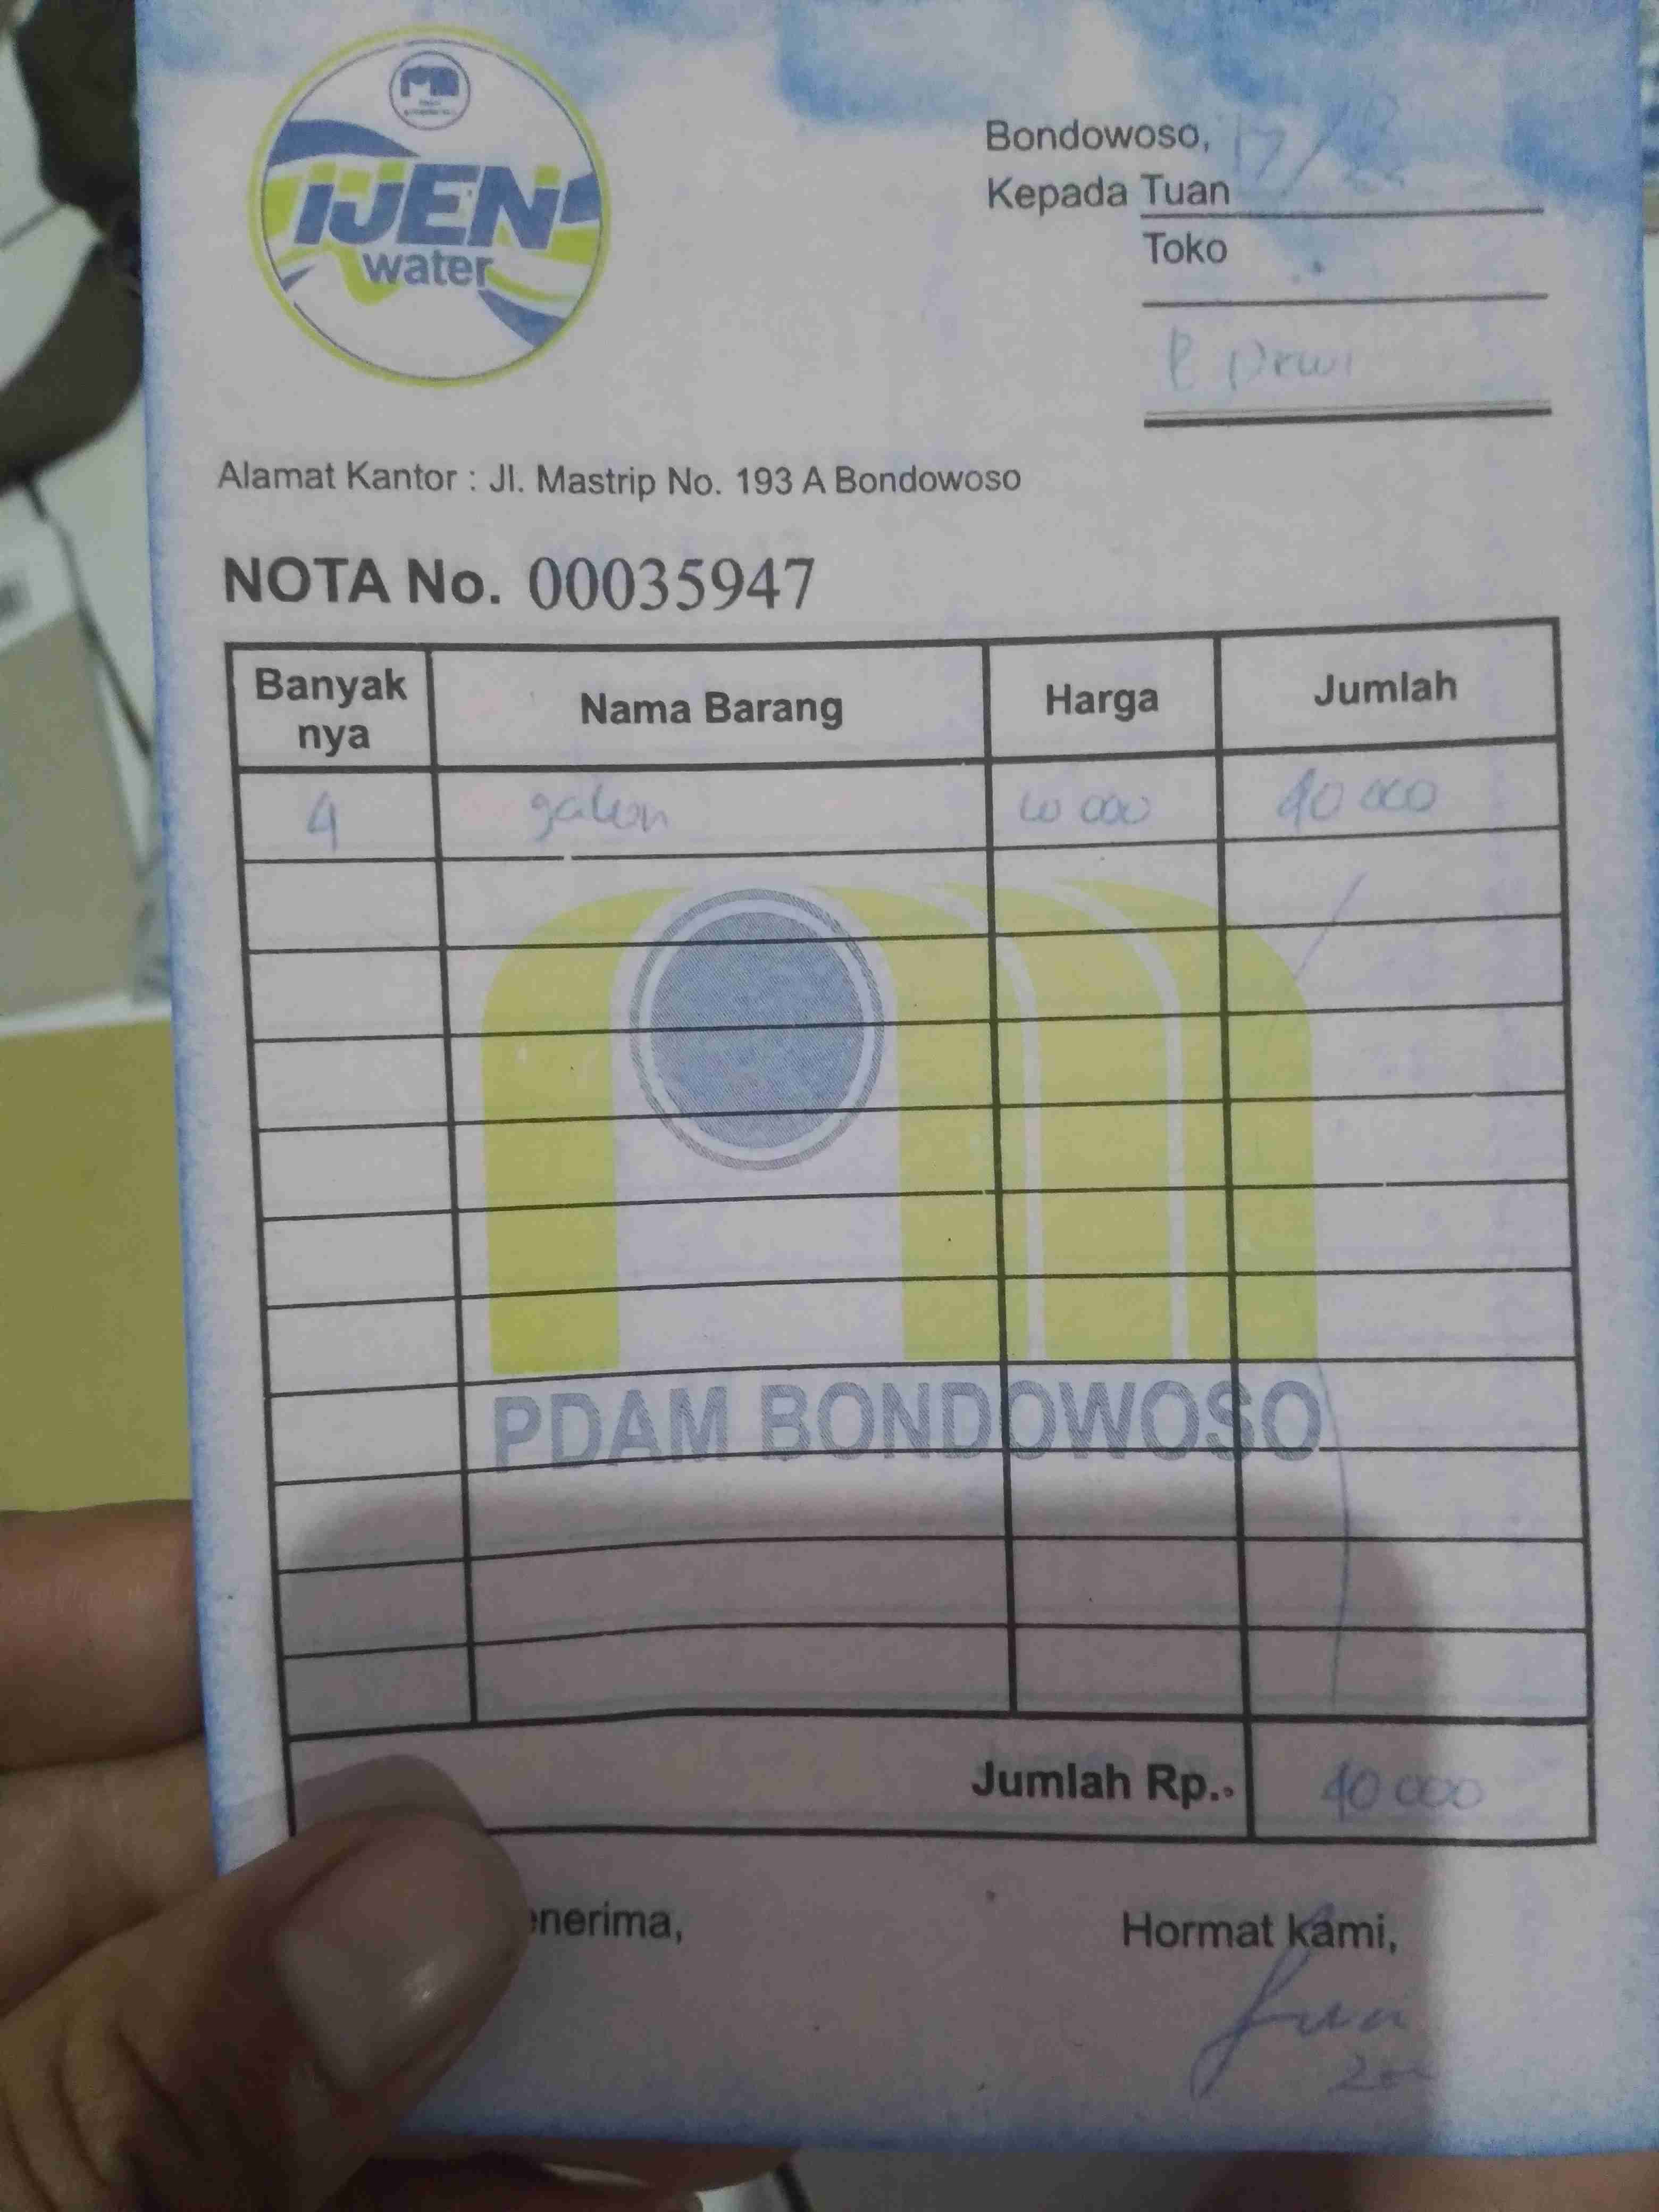 IJEN
water
Bondowoso, 17/
Kepada Tuan
Toko
P Dewi
Alamat Kantor : Jl. Mastrip No. 193 A Bondowoso
NOTA No. 00035947
Banyak nya Nama Barang Harga Jumlah
4 galon 10 000 40 000
PDAM BONDOWOSO
Jumlah Rp.. 40 000
enerima, Hormat kami,